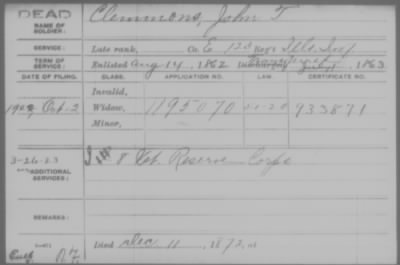 DEAD
NAME OF SOLDIER: Clemmons, John T
SERVICE: Late rank, Co. E 123 Reg't Ills. Inf
TERM OF SERVICE: Enlisted Aug 14, 1862 Transferred 1863
DATE OF FILING. CLASS. APPLICATION NO. LAW. CERTIFICATE NO.
Invalid,
Oct-2 Widow, 1195070 933871
Minor,
3-26-23
ADDITIONAL SERVICES: 8 Vet. Reserve Corps
REMARKS:
Died Dec 11, 1872, at